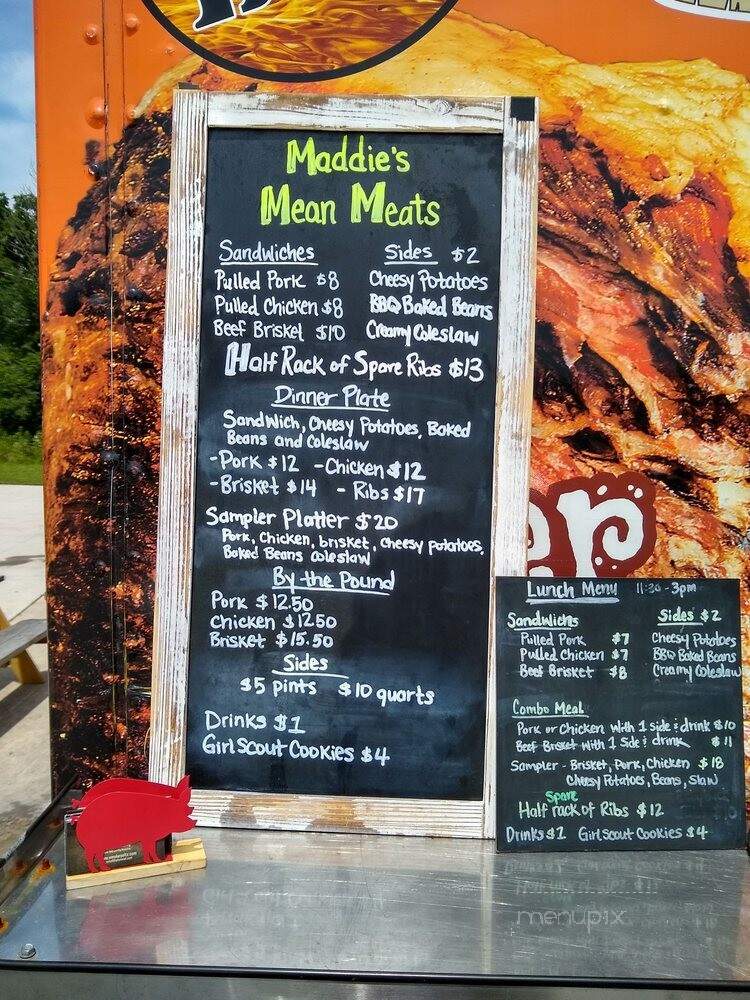 Maddie's
Mean Meats
Sandwiches Sides $2
Pulled Pork $8 Cheesy Potatoes
Pulled Chicken $8 BBQ Baked Beans
Beef Brisket $10 Creamy Coleslaw
Half Rack of Spare Ribs $13
Dinner Plate
Sandwich, Cheesy Potatoes, Baked
Beans and Coleslaw
-Pork $12 -Chicken $12
-Brisket $14 - Ribs $17
Sampler Platter $20
Pork, Chicken, brisket, Cheesy Potatoes,
Baked Beans Coleslaw
By the Pound
Pork $12.50
Chicken $12.50
Brisket $15.50
Sides
$5 pints $10 quarts
Drinks $1
Girl Scout Cookies $4
Lunch Menu 11:30-3pm
Sandwichs Sides $2
Pulled Pork $7 Cheesy Potatoes
Pulled Chicken $7 BBQ Baked Beans
Beef Brisket $8 Creamy Coleslaw
Combo Meal
Pork or Chicken with 1 side & drink $10
Beef Brisket with 1 Side & drink $11
Sampler - Brisket, Pork, Chicken $18
Cheesy Potatoes, Beans, Slaw
Spare
Half rack of Ribs $12
Drinks $1 Girl Scout Cookies $4
menupix